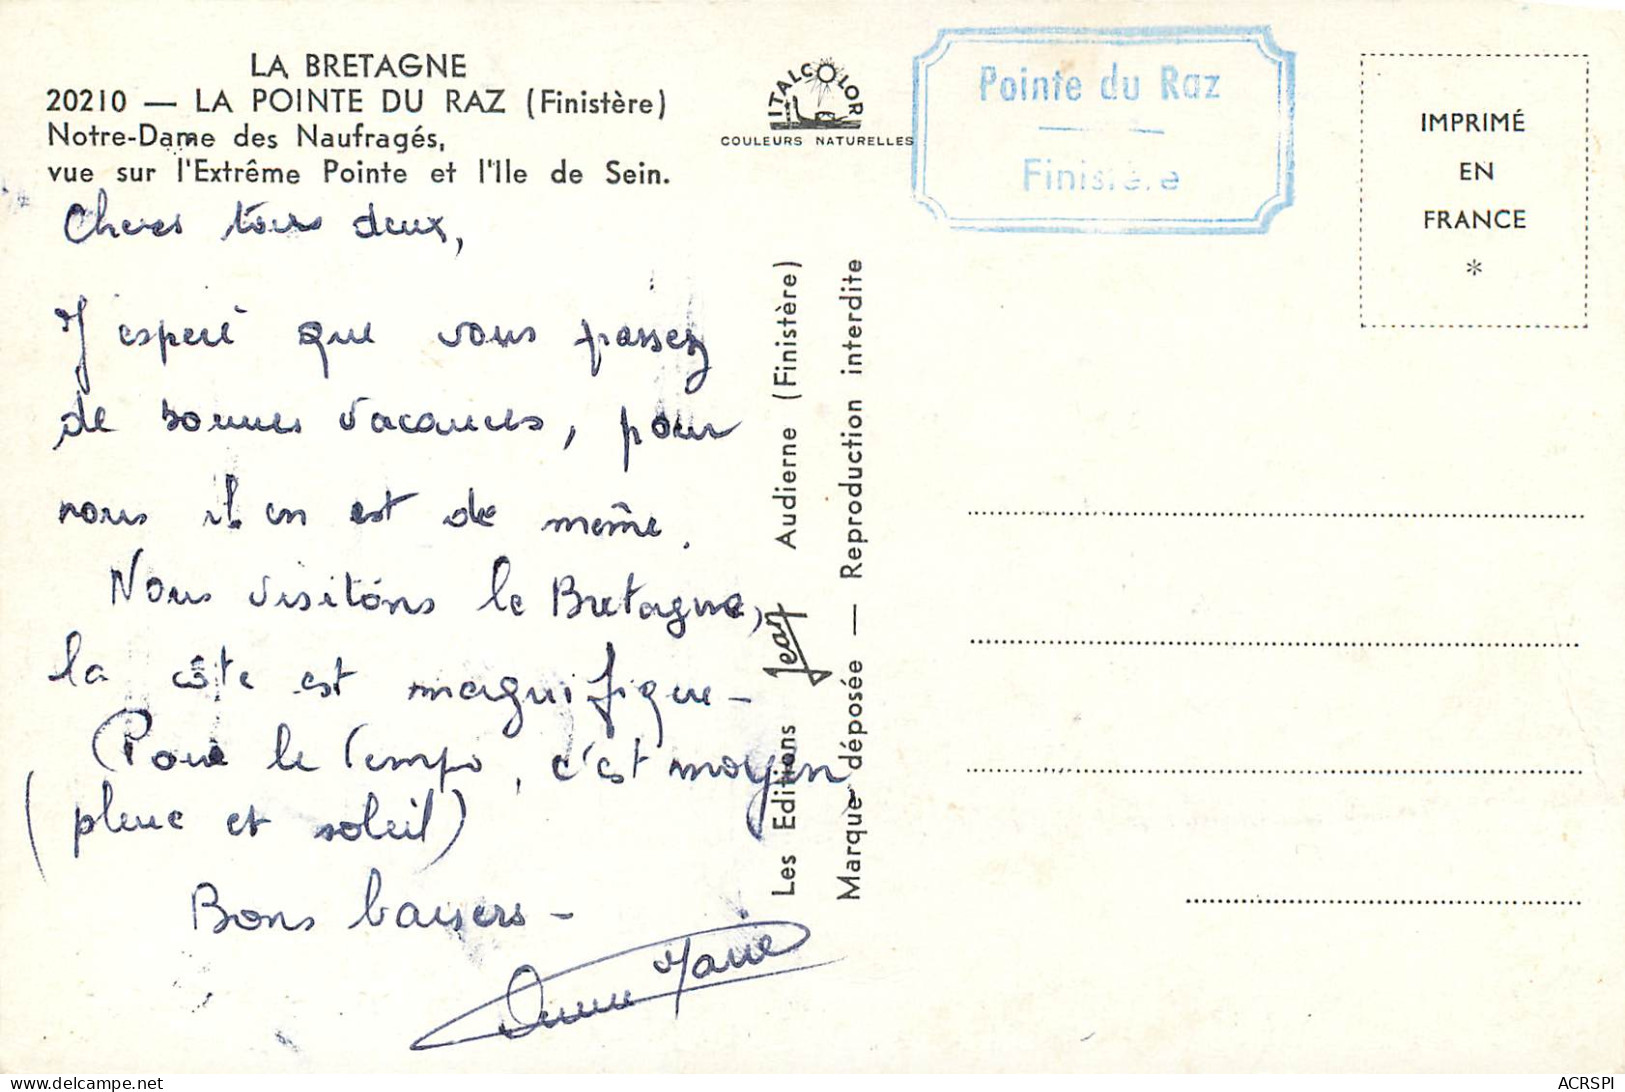 LA BRETAGNE
20210 — LA POINTE DU RAZ (Finistère)
Notre-Dame des Naufragés,
vue sur l'Extrême Pointe et l'Ile de Sein.
Cheres tous deux,
J'espere que vous passez
de bonnes vacances, pour
nous il en est de même.
Nous visitons la Bretagne,
la côte est magnifique -
Pour le temps, c'est moyen
(pluie et soleil)
Bons baisers -
Anne Marie
ITALCOLOR
COULEURS NATURELLES
Les Editions Jean Audierne (Finistère)
Marque déposée — Reproduction interdite
Pointe du Raz
Finistère
IMPRIMÉ
EN
FRANCE
*
delcampe.net
ACRSPI